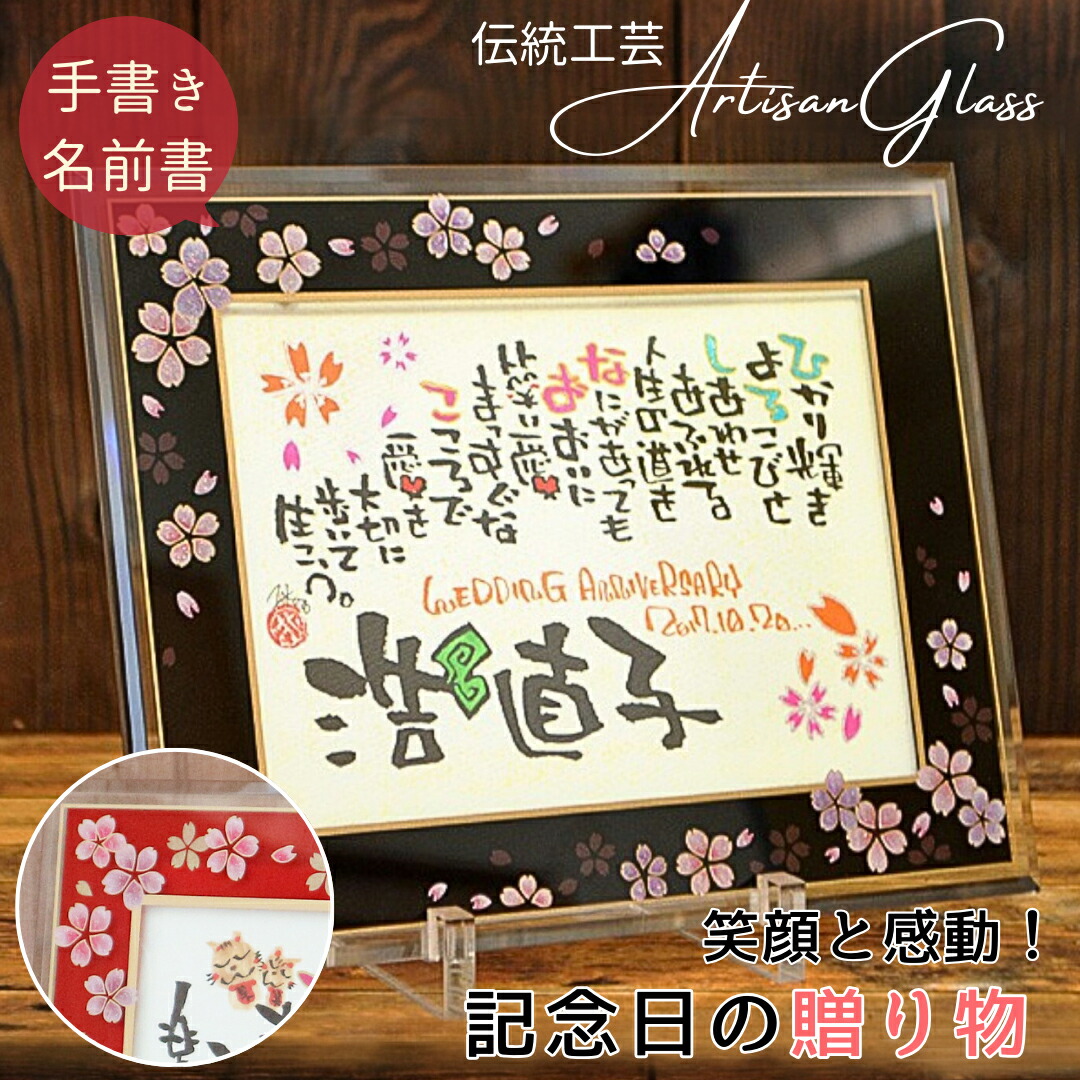 手書き
名前書
伝統工芸
Artisan Glass
ひかり輝き
よろこびと
しあわせ
あふれる
人生の道を
なにがあっても
おおいに
笑い愛
まっすぐな
こころで
愛を
大切に
歩いて
生こう。
WEDDING ANNIVERSARY
2017.10.20...
浩 直子
笑顔と感動！
記念日の贈り物